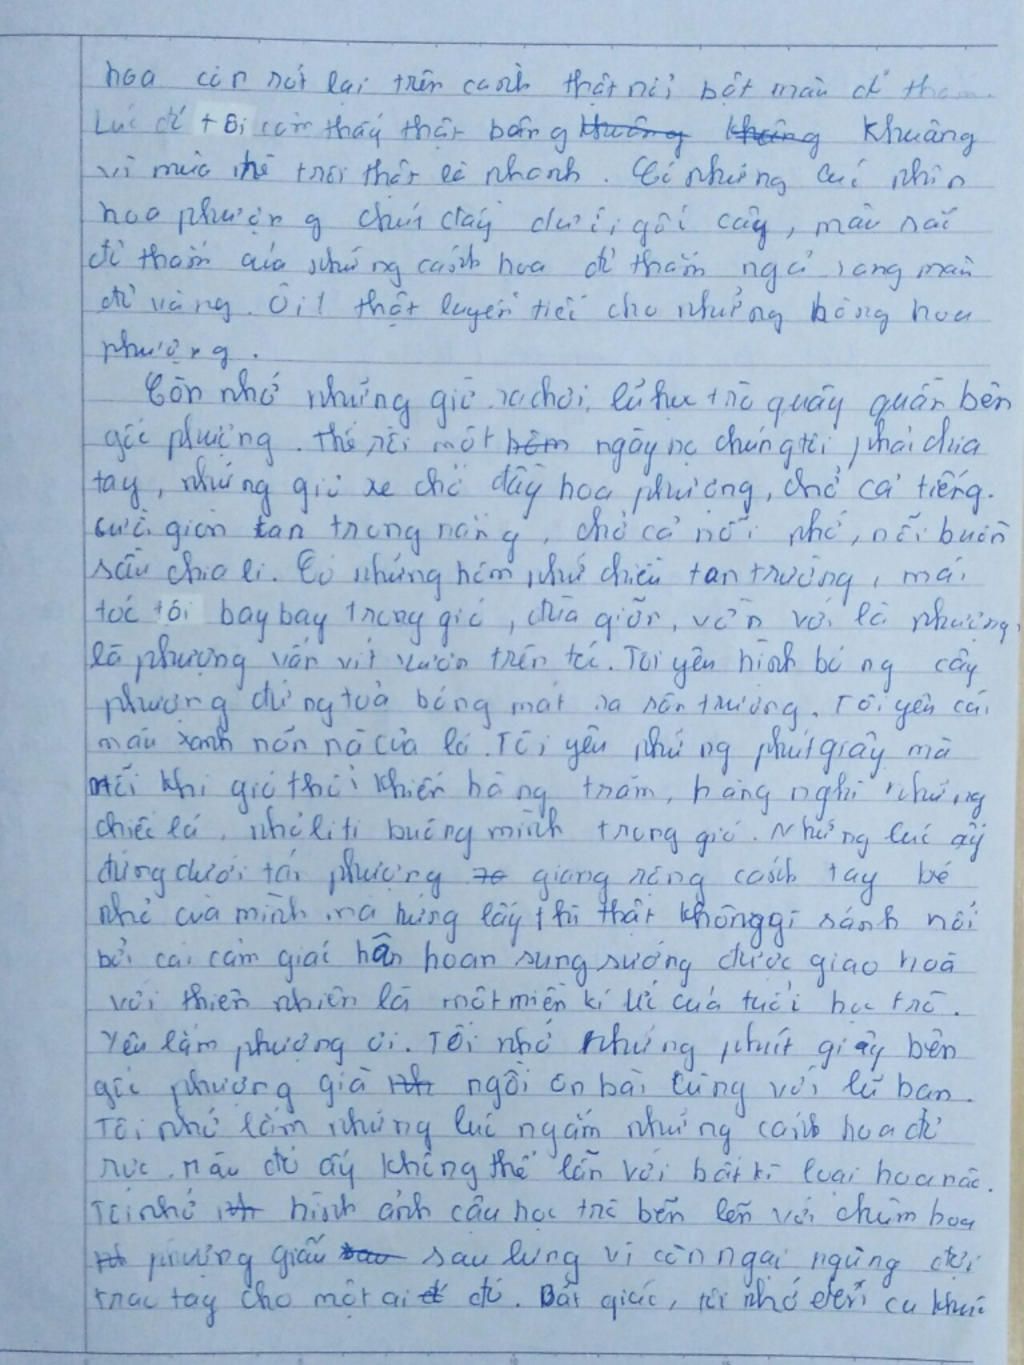 hoa còn sót lại trên cành thật nổi bật màu đỏ thắm.
Lúc đó tôi cảm thấy thật bâng khuâng
vì mùa hè trôi thật là nhanh. Có những lúc nhìn
hoa phượng chín đầy dưới gốc cây, màu sắc
đỏ thắm của những cánh hoa đỏ thắm ngả sang màu
đỏ vàng. Ôi! thật luyến tiếc cho những bông hoa
phượng.
Còn nhớ những giờ ra chơi, lũ học trò quây quần bên
gốc phượng. Thế rồi một ngày nọ chúng tôi phải chia
tay, những giỏ xe chở đầy hoa phượng, chở cả tiếng
cười giòn tan trong nắng, chở cả nỗi nhớ, nỗi buồn
sầu chia li. Có những hôm như chiều tan trường, mái
tóc tôi bay bay trong gió, đùa giỡn, vờn với lá phượng,
lá phượng vấn vít vươn trên tóc. Tôi yêu hình bóng cây
phượng đứng toả bóng mát ra sân trường. Tôi yêu cái
màu xanh nõn nà của lá. Tôi yêu những phút giây mà
mỗi khi gió thổi khiến hàng trăm, hàng nghì những
chiếc lá nhỏ li ti buông mình trong gió. Những lúc ấy
đứng dưới tán phượng giang rộng cánh tay bé
nhỏ của mình mà hứng lấy thì thật không gì sánh nổi
bởi cái cảm giác hân hoan sung sướng được giao hoà
với thiên nhiên là một miền kí ức của tuổi học trò.
Yêu lắm phượng ơi. Tôi nhớ những phút giây bên
gốc phượng già ngồi ôn bài cùng với lũ bạn.
Tôi nhớ lắm những lúc ngắm những cánh hoa đỏ
rực. Màu đỏ ấy không thể lẫn với bất kì loại hoa nào.
Tôi nhớ hình ảnh cậu học trò bẽn lẽn với chùm hoa
phượng giấu sau lưng vì còn ngại ngùng đợi
trao tay cho một ai đó. Bất giác, tôi nhớ đến ca khúc